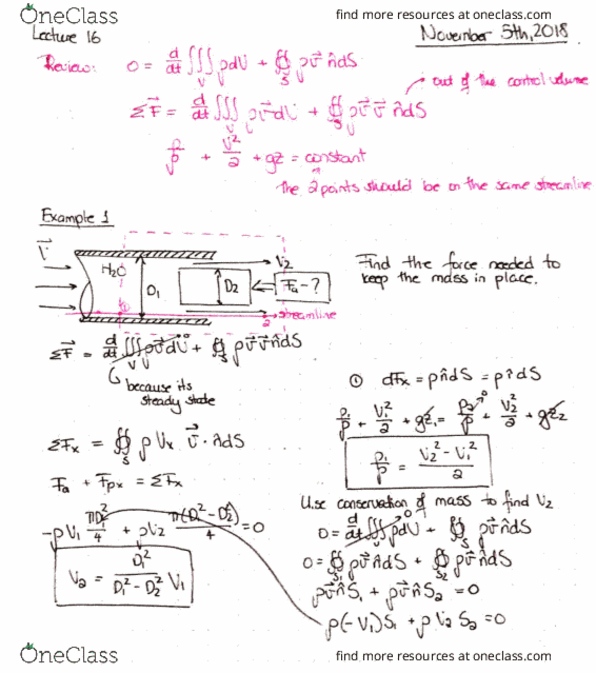 OneClass
find more resources at oneclass.com
Lecture 16
November 5th, 2018
Review: 0 = d/dt ∭_V ρdV + ∯_S ρv⃗ n̂dS
out of the control volume
ΣF⃗ = d/dt ∭_V ρv⃗dV + ∯_S ρv⃗ v⃗ n̂dS
P/ρ + V²/2 + gz = constant
The 2 points should be on the same streamline
Example 1
V⃗
H₂O
D₁
D₂
V₂
Fa - ?
1
2
streamline
Find the force needed to
keep the mass in place.
ΣF⃗ = d/dt ∭_V ρv⃗dV⁰ + ∯_S ρv⃗ v⃗ n̂dS
because its
steady state
ΣFx = ∯_S ρ Vx v⃗ · n̂dS
Fa + Fpx = ΣFx
-ρV₁ πD₁²/4 + ρV₂ π(D₁² - D₂²)/4 = 0
V₂ = D₁²/(D₁² - D₂²) V₁
① dFx = pn̂dS = p î dS
P₁/ρ + V₁²/2 + gz₁ = P₂⁰/ρ + V₂²/2 + gz₂
P₁/ρ = (V₂² - V₁²)/2
Use conservation of mass to find V₂
0 = d/dt ∭_V ρdV⁰ + ∯_S ρv⃗ n̂dS
0 = ∯_S₁ ρv⃗ n̂dS + ∯_S₂ ρv⃗ n̂dS
ρv⃗ n̂ S₁ + ρv⃗ n̂ S₂ = 0
ρ(-V₁)S₁ + ρ V₂ S₂ = 0
OneClass
find more resources at oneclass.com